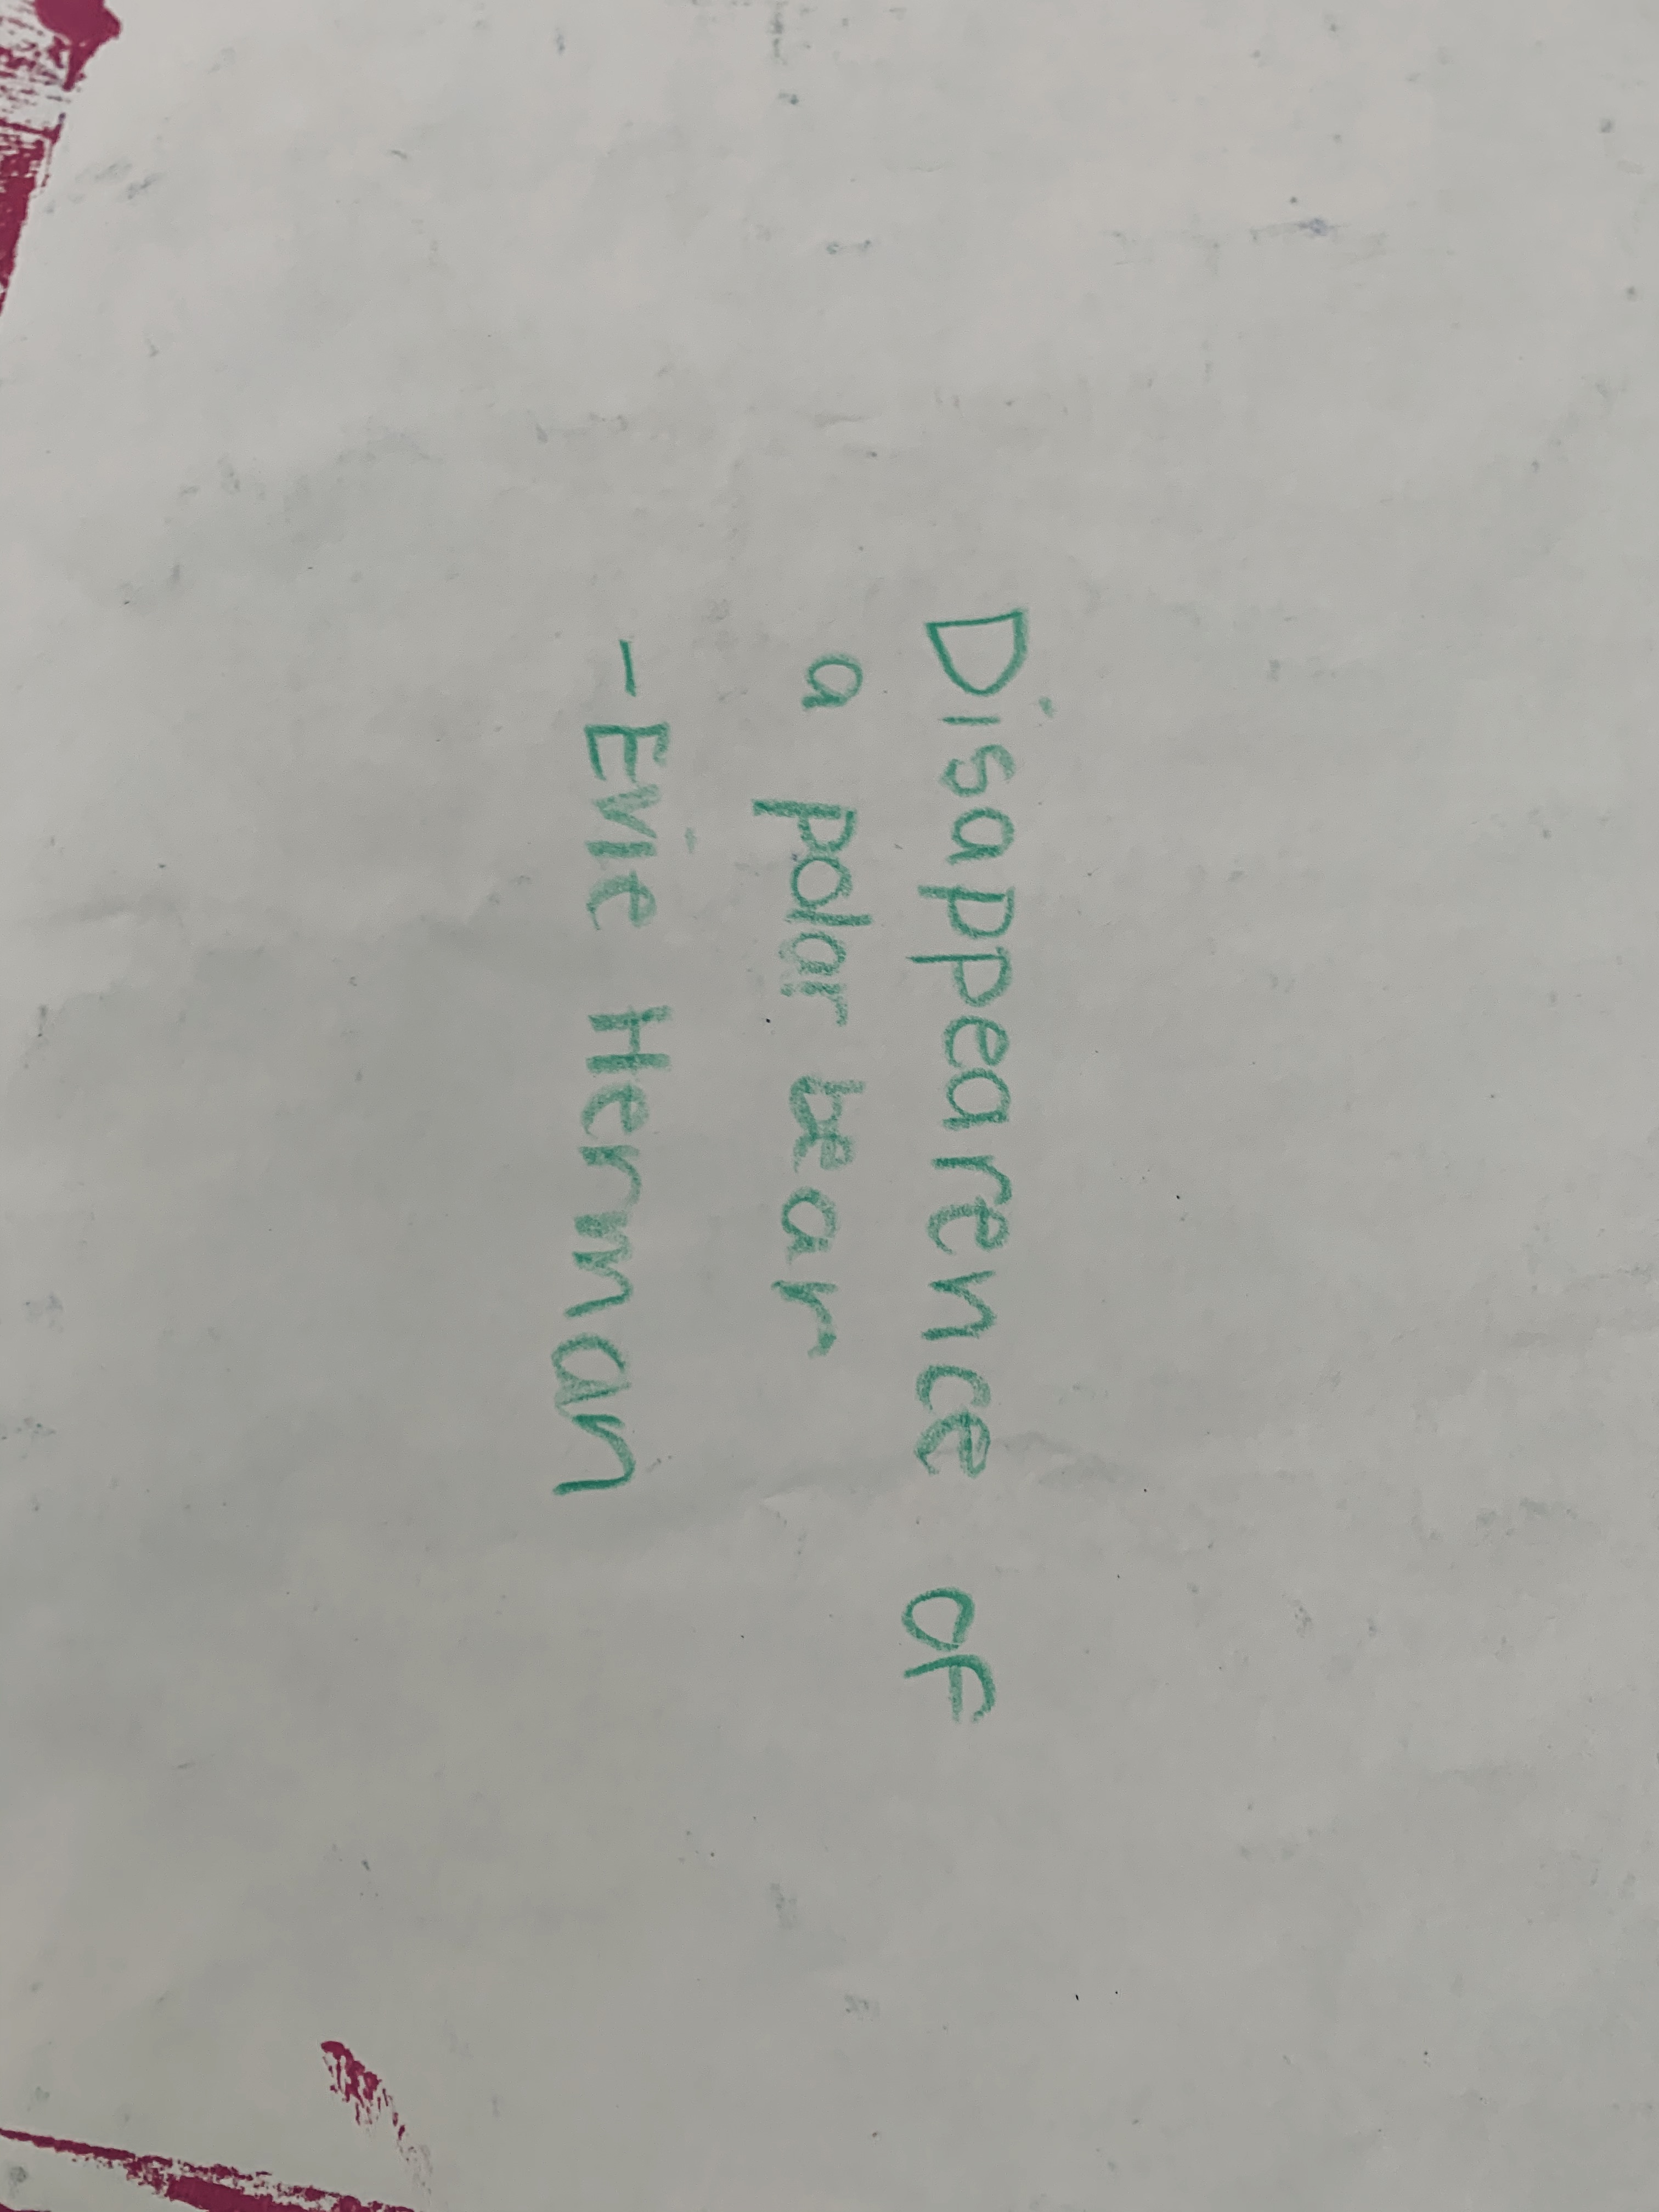 Disappearence of
a polar bear
- Evie Herman